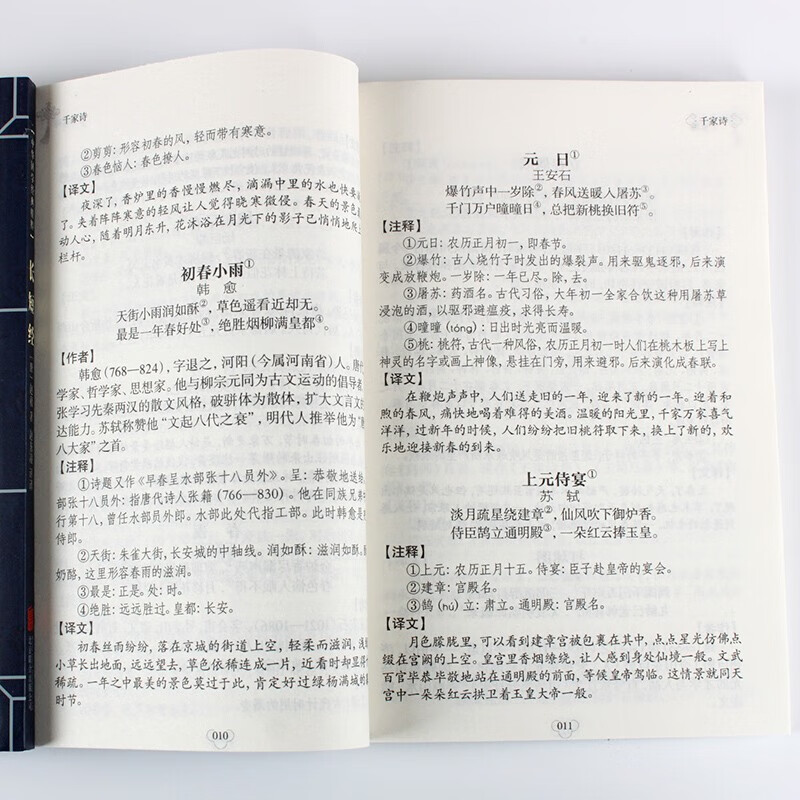 千家诗
②剪剪：形容初春的风，轻而带有寒意。
③春色恼人：春色撩人。
【译文】
夜深了，香炉里的香慢慢燃尽，滴漏中里的水也快要
了。夹着阵阵寒意的轻风让人觉得晓寒微侵。春天的景色
动人心，随着明月东升，花沐浴在月光下的影子已悄悄地
栏杆。
初春小雨①
韩愈
天街小雨润如酥②，草色遥看近却无。
最是一年春好处③，绝胜烟柳满皇都④。
【作者】
韩愈（768—824），字退之，河阳（今属河南省）人。唐
学家、哲学家、思想家。他与柳宗元同为古文运动的倡导
张学习先秦两汉的散文风格，破骈体为散体，扩大文言文
达能力。苏轼称赞他“文起八代之衰”，明代人推举他为“
八大家”之首。
【注释】
①诗题又作《早春呈水部张十八员外》。呈：恭敬地送给
部张十八员外：指唐代诗人张籍（766—830）。他在同族兄弟
行第十八，曾任水部员外郎。水部此处代指工部。此时韩愈是
侍郎。
②天街：朱雀大街，长安城的中轴线。润如酥：滋润如酥。
奶酪，这里形容春雨的滋润。
③最是：正是。处：时。
④绝胜：远远胜过。皇都：长安。
【译文】
初春丝雨纷纷，落在京城的街道上空，轻柔而滋润，浅
小草长出地面，远远望去，草色依稀连成一片，近看时却显得
稀疏。一年之中最美的景色莫过于此，肯定好过绿杨满城的
时节。
010
千家诗
元 日①
王安石
爆竹声中一岁除②，春风送暖入屠苏③。
千门万户曈曈日④，总把新桃换旧符⑤。
【注释】
①元日：农历正月初一，即春节。
②爆竹：古人烧竹子时发出的爆裂声。用来驱鬼逐邪，后来演
变成放鞭炮。一岁除：一年已尽。除，去。
③屠苏：药酒名。古代习俗，大年初一全家合饮这种用屠苏草
浸泡的酒，以驱邪避瘟疫，求得长寿。
④曈曈（tóng）：日出时光亮而温暖。
⑤桃：桃符，古代一种风俗，农历正月初一时人们在桃木板上写上
神灵的名字或画上神像，悬挂在门旁，用来避邪。后来演化成春联。
【译文】
在鞭炮声声中，人们送走旧的一年，迎来了新的一年。迎着和
煦的春风，痛快地喝着难得的美酒。温暖的阳光里，千家万家喜气
洋洋，过新年的时候，人们纷纷把旧桃符取下来，换上了新的，欢
乐地迎接新春的到来。
上元侍宴①
苏 轼
淡月疏星绕建章②，仙风吹下御炉香。
侍臣鹄立通明殿③，一朵红云捧玉皇。
【注释】
①上元：农历正月十五。侍宴：臣子赴皇帝的宴会。
②建章：宫殿名。
③鹄（hú）立：肃立。通明殿：宫殿名。
【译文】
月色朦胧里，可以看到建章宫被包裹在其中，点点星光仿佛点
缀在宫阙的上空。皇宫里香烟缭绕，让人感到身处仙境一般。文武
百官毕恭毕敬地站在通明殿的前面，等候皇帝驾临。这情景就同天
宫中一朵朵红云拱卫着玉皇大帝一般。
011